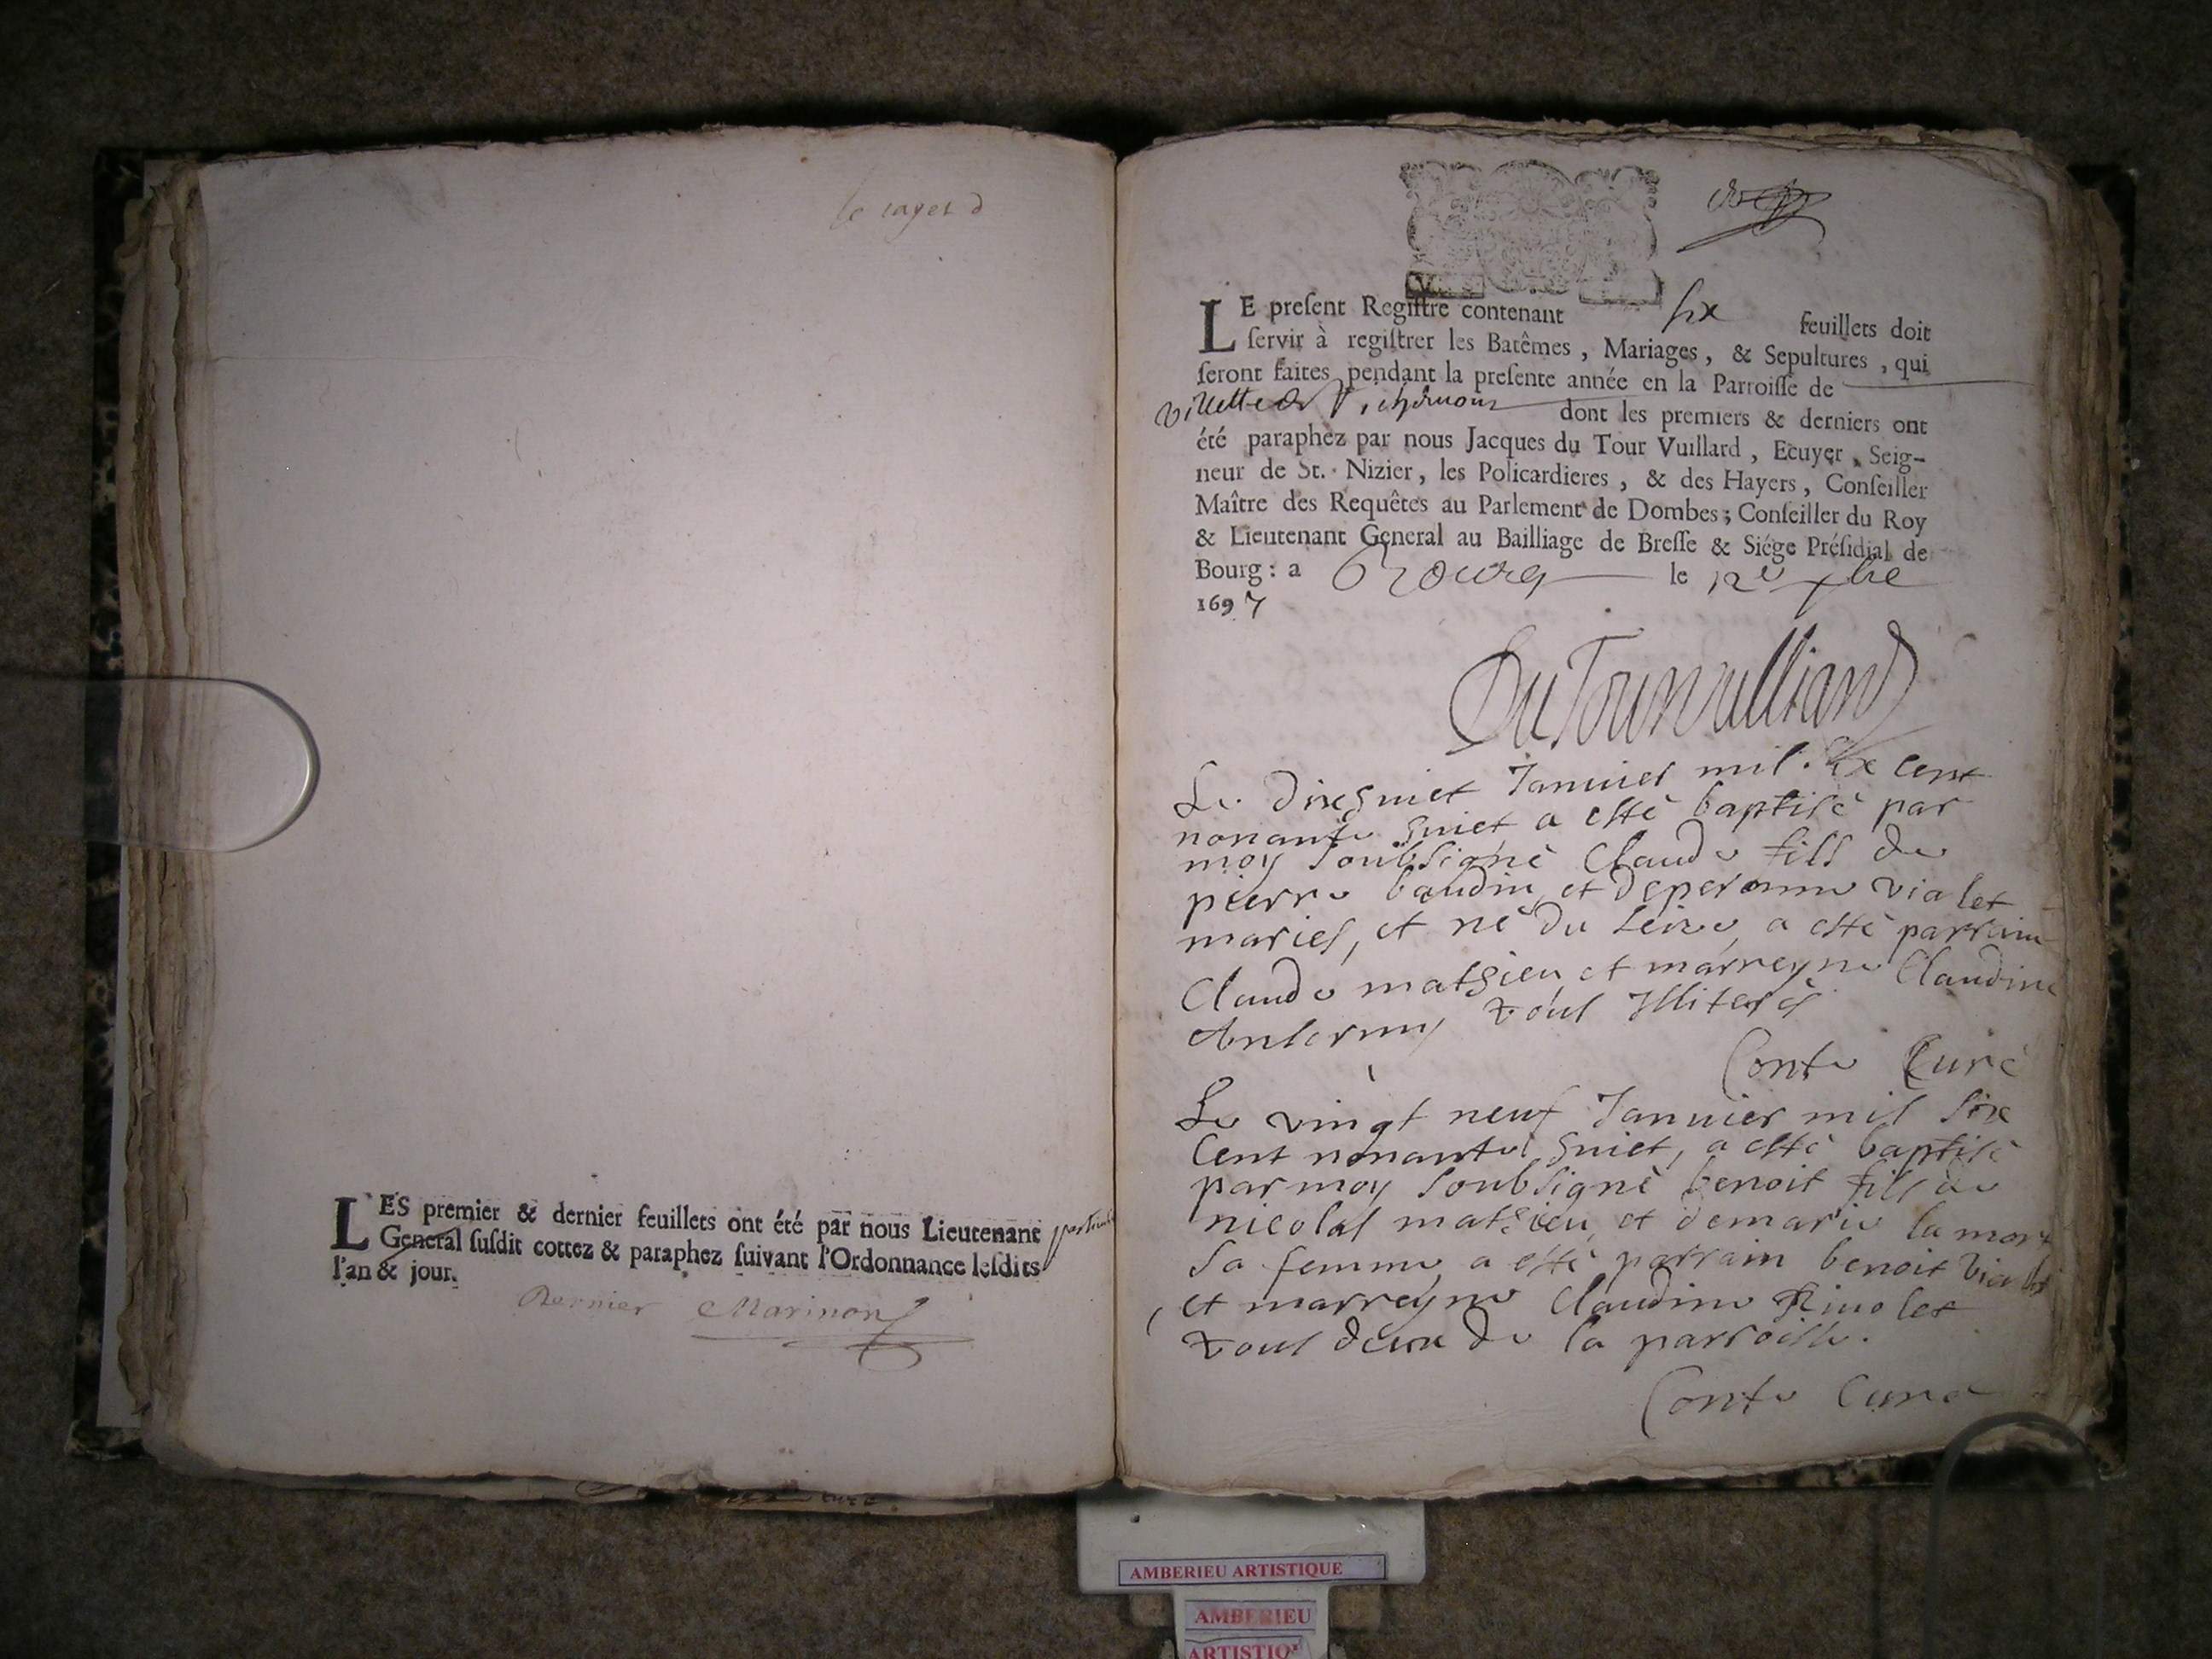 le cayet d
LES premier & dernier feuillets ont été par nous Lieutenant
General susdit cottez & paraphez suivant l'Ordonnance lesdits
l'an & jour.
Dernier Marinon
LE present Registre contenant six feuillets doit
servir à registrer les Batêmes, Mariages, & Sepultures, qui
seront faites pendant la presente année en la Parroisse de
villette & dont les premiers & derniers ont
été paraphez par nous Jacques du Tour Vuillard, Ecuyer, Seig-
neur de St. Nizier, les Policardieres, & des Hayers, Conseiller
Maître des Requêtes au Parlement de Dombes; Conseiller du Roy
& Lieutenant General au Bailliage de Bresse & Siége Présidial de
Bourg: a Bourg le 12e xbre
1697
DuTourvulliard
Le dixhuict Januier mil six cent
nonante huict a esté baptisé par
moy soubsigné Claude fils de
pierre baudin et de peronne vialet
maries, et né du seize, a esté parrain
Claude mathieu et marreyne Claudine
tous Illiterés
Conte Curé
Le vingt neuf Januier mil six
Cent nonante huict, a esté baptisé
par moy soubsigné benoit fils de
nicolas mathieu et de marie la mort
sa femme, a esté parrain benoit vialet
et marreyne Claudine Riuolet
tous deux de la parroisse.
Conte Curé
AMBERIEU ARTISTIQUE
AMBERIEU
ARTISTIQ